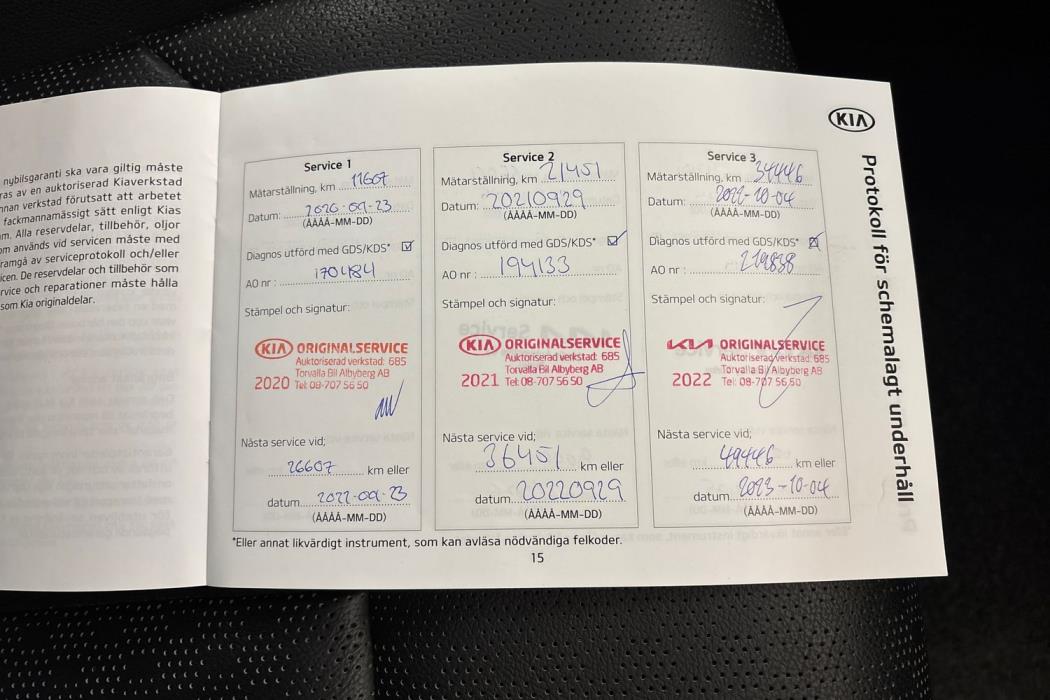 nybilsgaranti ska vara giltig måste
ras av en auktoriserad Kiaverkstad
nnan verkstad förutsatt att arbetet
fackmannamässigt sätt enligt Kias
m. Alla reservdelar, tillbehör, oljor
om används vid servicen måste med
ramgå av serviceprotokoll och/eller
icen. De reservdelar och tillbehör som
rvice och reparationer måste hålla
som Kia originaldelar.
KIA
Protokoll för schemalagt underhåll
Service 1
Mätarställning, km 11607
Datum: 2020-09-23
(ÅÅÅÅ-MM-DD)
Diagnos utförd med GDS/KDS*
AO nr : 170484
Stämpel och signatur:
KIA ORIGINALSERVICE
Auktoriserad verkstad: 685
Torvalla Bil Albyberg AB
2020 Tel: 08-707 56 50
Nästa service vid;
26607 km eller
datum 2022-09-23
(ÅÅÅÅ-MM-DD)
Service 2
Mätarställning, km 21451
Datum: 20210929
(ÅÅÅÅ-MM-DD)
Diagnos utförd med GDS/KDS*
AO nr : 194133
Stämpel och signatur:
KIA ORIGINALSERVICE
Auktoriserad verkstad: 685
Torvalla Bil Albyberg AB
2021 Tel: 08-707 56 50
Nästa service vid;
36451 km eller
datum 20220929
(ÅÅÅÅ-MM-DD)
Service 3
Mätarställning, km 34446
Datum: 2022-10-04
(ÅÅÅÅ-MM-DD)
Diagnos utförd med GDS/KDS*
AO nr : 219838
Stämpel och signatur:
KIA ORIGINALSERVICE
Auktoriserad verkstad: 685
Torvalla Bil Albyberg AB
2022 Tel: 08-707 56 50
Nästa service vid;
49446 km eller
datum 2023-10-04
(ÅÅÅÅ-MM-DD)
*Eller annat likvärdigt instrument, som kan avläsa nödvändiga felkoder.
15